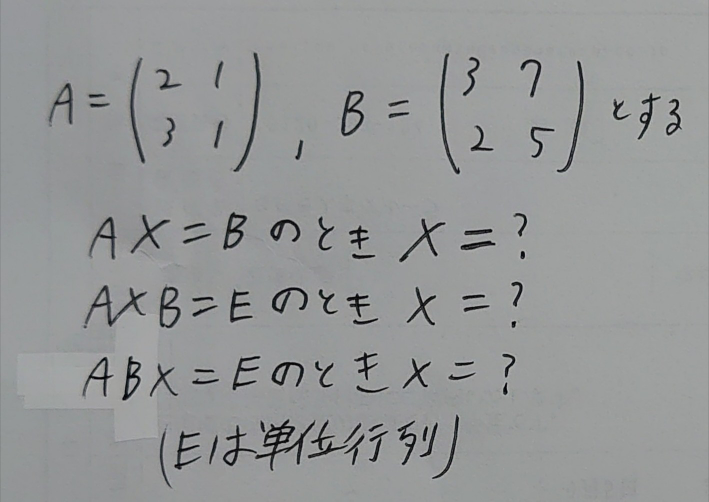 A = (2 1 3 1), B = (3 7 2 5) とする
AX = B のとき X = ?
AXB = E のとき X = ?
ABX = E のとき X = ?
(Eは単位行列)